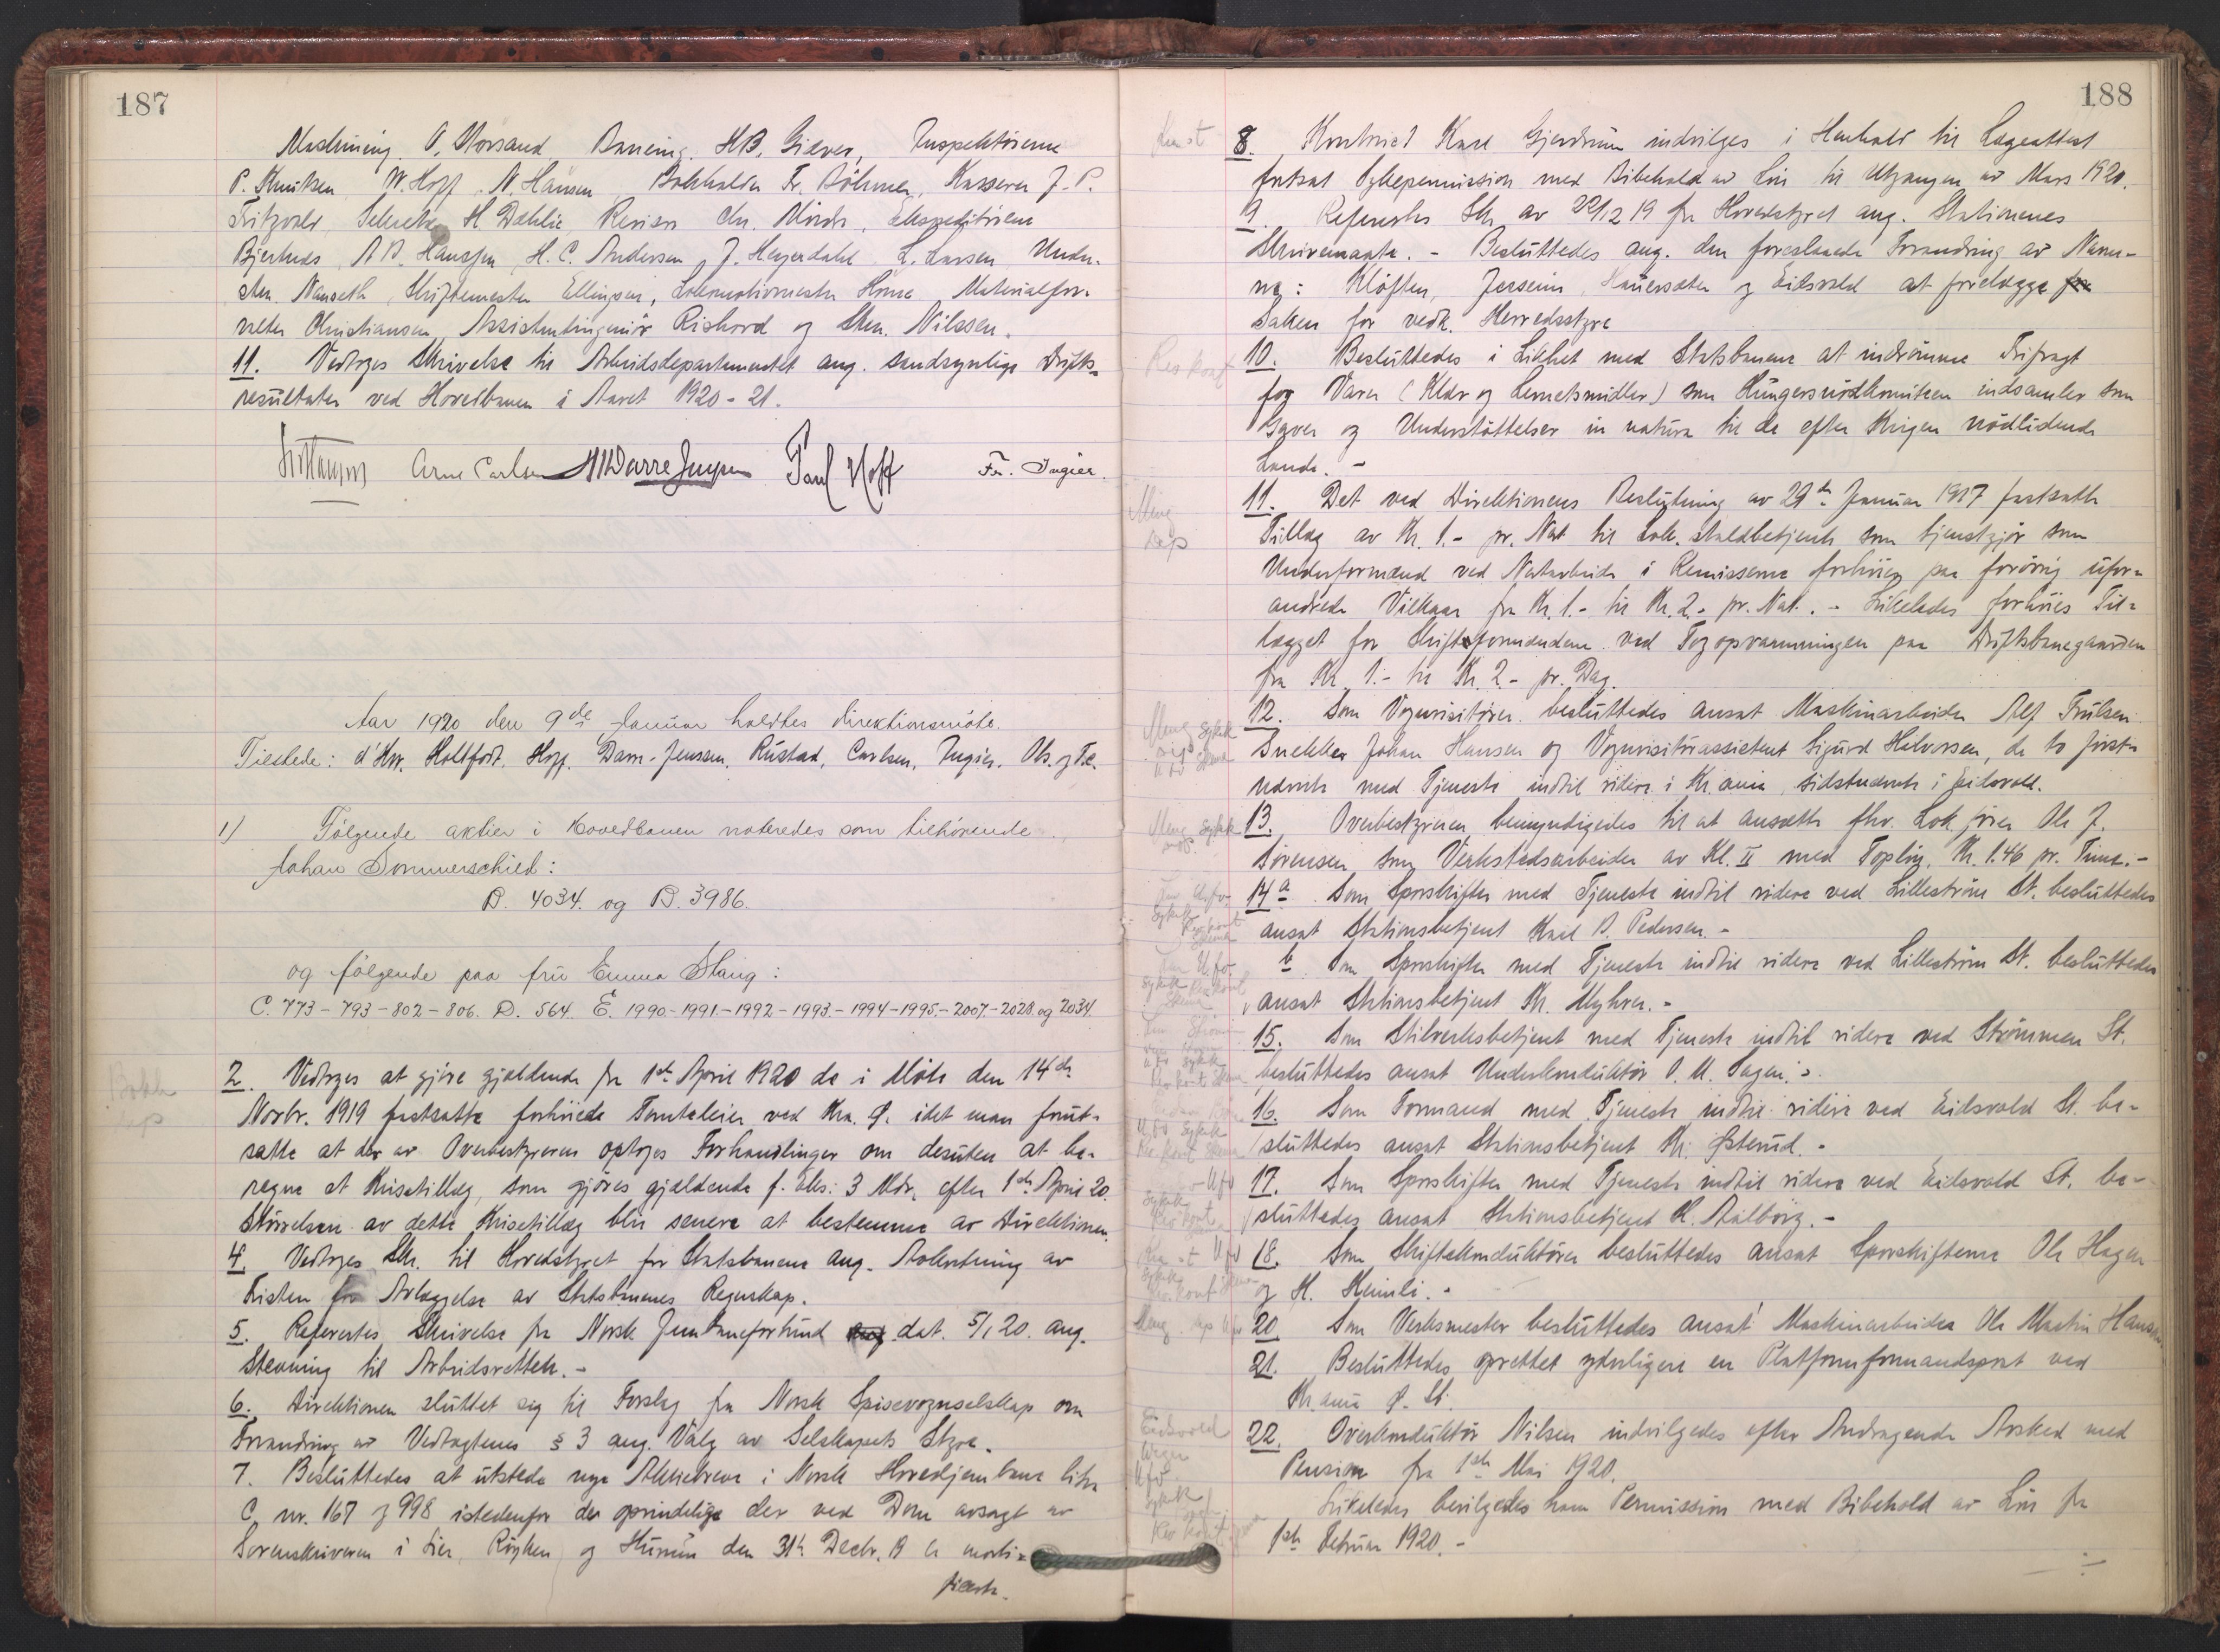 187
Maskining. O. Storsand Baneing. HB. Giæver, Inspektörerne
P. Knutsen W. Hoff N. Hansen Bokholder Fr. Böhmer, Kasserer J. P.
Fritzvold, H. Dæhlie, Revisor Chr. Ekspeditörene
Bjerknes, A B. Hanssen, H. C. Andersen, J. Heyerdahl L. Larsen Under-
stm. Nanseth, Skiftemester Ellingsen, Lokomotivmester Materialfor-
valter Christiansen, Assistentingeniör Rishovd og Stm. Nilssen.
11. Vedtoges Skrivelse til Arbeidsdepartementet ang. sandsynlige Drifts-
resultater ved Hovedbanen i Aaret 1920-21.
Arne Carlsen Paul Hoff Fr. Ingier.
Aar 1920 den 9de Januar holdtes direktionsmöte.
Tilstede: d'Hrr. Holtfodt, Hoff, Darre-Jenssen, Rustad, Carlsen, Ingier, Obs. og T.c.
1) Fölgende aktier i Hovedbanen noteredes som tilhörende
Johan Sommerschield:
B. 4034. og B. 3986.
og fölgende paa frü Emma Stang:
C. 773-793-802-806. D. 564. E. 1990-1991-1992-1993-1994-1995-2007-2028 og 2034.
2. Vedtoges at gjöre gjældende fra 1ste April 1920 de i Möte den 14de
Novbr. 1919 fastsatte forhöiede Tomteleier ved Kra. Ø. idet man forut-
satte at der av Overbestyreren optoges Forhandlinger om desuten at be-
regne et Krisetillæg, som gjöres gjældende f. Eks: 3 Mdr. efter 1ste April 20.
Störrelsen av dette Krisetillæg blir senere at bestemme av Direktionen.
4. Vedtoges Skr. til Hovedstyret for Statsbanene ang. Avkortning av
Fristen for Avlæggelse av Statsbanenes Regnskap.
5. Refereertes Skrivelse fra Norsk Jernbaneforbund dat. 5/1 20. ang.
Stevning til Arbeidsretten.-
6. Direktionen sluttet sig til Forslag fra Norsk Spisevognselskap om
Forandring av Vedtægtenes § 3 ang. Valg av Selskapets Styre.
7. Besluttedes at utstede nye Aktiebreve i Norsk Hovedjernbane litra
C nr. 167 og 998 istedenfor de oprindelige der ved Dom avsagt av
Sorenskriveren i Lier, Röyken og Hurum den 31te Decbr. 19 er morti-
ficerte.
188
8. Kontorist Karl Gjerdrum indvilges i Henhold til Lægeattest
fortsat Sykepermission med Bibehold av Lön til Utgangen av Mars 1920.
9. Referertes Skr. av 22/12 19 fra Hovedstyret ang. Stationenes
Skrivemaate. - Besluttedes ang. den foreslaaede Forandring av Navne-
ne: Klöften, Jessheim, Hauersæter og Eidsvold at forelægge
Saken for vedk. Herredsstyre
10. Besluttedes i Likhet med Statsbanene at indrömme Frifragt
for Varer (Klær og Levnetsmidler) som Hungersnödkomiteen indsamler som
Gaver og Understöttelser in natura til de efter Krigen nödlidende
Lande. -
11. Det ved Direktionens Beslutning av 29de Januar 1917 fastsatte
Tillæg av Kr. 1.- pr. Nat til Lok. staldbetjente som tjenstgjör som
Underformænd ved Natarbeide i Remisserne forhöies paa forövrig ufor-
andrede Vilkaar fra Kr. 1.- til Kr. 2.- pr. Nat. - Likeledes forhöies Til-
lægget for Skifteformændene ved Togopvarmningen paa Driftsbanegaarden
fra Kr. 1.- til Kr. 2.- pr. Dag.
12. Som Vognvisitörer besluttedes ansat Maskinarbeider Alf Trulsen
Snekker Johan Hansen og Vognvisitörassistent Sigurd Halvorsen, de to första
nævnte med Tjeneste indtil videre i Kr.ania, sidstnævnte i Eidsvold.
13. Overbestyreren bemyndigedes til at ansætte fhv. Lok.förer Ole J.
Sörensen som Verkstedsarbeider av Kl. II med Toplön, Kr. 1.46 pr. Time.-
14 a Som Sporskifter med Tjeneste indtil videre ved Lilleström St. besluttedes
ansat Stationsbetjent Karl A. Pedersen.-
b Som Sporskifter med Tjeneste indtil videre ved Lilleström St. besluttedes
ansat Stationsbetjent Kr. Myhrer.-
15. Som Stilverksbetjent med Tjeneste indtil videre ved Strömmen St.
besluttedes ansat Underkonduktör O. M. Sagen.-
16. Som Formand med Tjeneste indtil videre ved Eidsvold St. be-
sluttedes ansat Stationsbetjent Kr. Østerud.-
17. Som Sporskifter med Tjeneste indtil videre ved Eidsvold St. be-
sluttedes ansat Stationsbetjent K. Aalborg.-
18. Som Skiftekonduktörer besluttedes ansat Sporskifterne Ole Hagen
og H. Heimli.-
20 Som Verksmester besluttedes ansat Maskinarbeider Ole Martin Hansen.
21. Besluttedes oprettet yderligere en Platformformandspost ved
Kr.ania Ø. St.
22. Overkonduktör Nilsen indvilgedes efter Andragende Avsked med
Pension fra 1ste Mai 1920.
Likeledes bevilgedes ham Permission med Bibehold av Lön fra
1ste Februar 1920.-